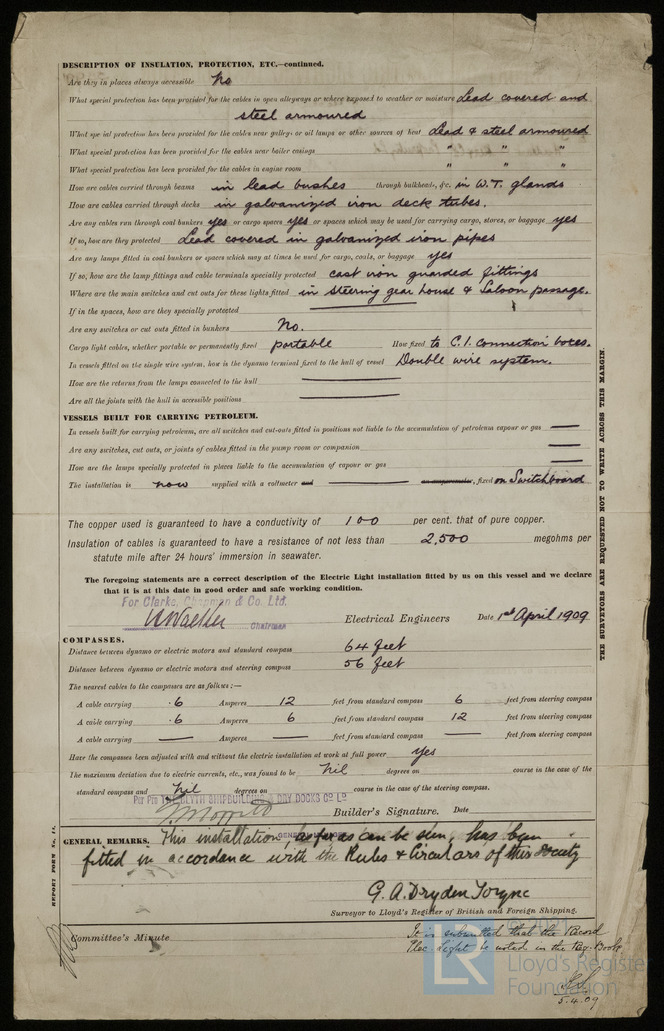 DESCRIPTION OF INSULATION, PROTECTION, ETC.—continued.
Are they in places always accessible No
What special protection has been provided for the cables in open alleyways or where exposed to weather or moisture Lead covered and
steel armoured
What special protection has been provided for the cables near galleys or oil lamps or other sources of heat Lead & steel armoured
What special protection has been provided for the cables near boiler casings " " "
What special protection has been provided for the cables in engine room " " "
How are cables carried through beams in lead bushes through bulkheads, &c. in W.T. glands
How are cables carried through decks in galvanized iron deck tubes.
Are any cables run through coal bunkers yes or cargo spaces yes or spaces which may be used for carrying cargo, stores, or baggage yes
If so, how are they protected Lead covered in galvanized iron pipes
Are any lamps fitted in coal bunkers or spaces which may at times be used for cargo, coals, or baggage yes
If so, how are the lamp fittings and cable terminals specially protected cast iron guarded fittings
Where are the main switches and cut outs for these lights fitted in steering gear house & Saloon passage.
If in the spaces, how are they specially protected —
Are any switches or cut outs fitted in bunkers No.
Cargo light cables, whether portable or permanently fixed portable How fixed to C.I. connection boxes.
In vessels fitted on the single wire system, how is the dynamo terminal fixed to the hull of vessel Double wire system.
How are the returns from the lamps connected to the hull —
Are all the joints with the hull in accessible positions —
VESSELS BUILT FOR CARRYING PETROLEUM.
In vessels built for carrying petroleum, are all switches and cut-outs fitted in positions not liable to the accumulation of petroleum vapour or gas —
Are any switches, cut outs, or joints of cables fitted in the pump room or companion —
How are the lamps specially protected in places liable to the accumulation of vapour or gas —
The installation is now supplied with a voltmeter and — an amperemeter, fixed on Switchboard
The copper used is guaranteed to have a conductivity of 100 per cent. that of pure copper.
Insulation of cables is guaranteed to have a resistance of not less than 2,500 megohms per
statute mile after 24 hours' immersion in seawater.
The foregoing statements are a correct description of the Electric Light installation fitted by us on this vessel and we declare
that it is at this date in good order and safe working condition.
For Clarke, Chapman & Co. Ltd.
Chairman Electrical Engineers Date 1st April 1909
COMPASSES.
Distance between dynamo or electric motors and standard compass 64 feet
Distance between dynamo or electric motors and steering compass 56 feet
The nearest cables to the compasses are as follows:—
A cable carrying .6 Amperes 12 feet from standard compass 6 feet from steering compass
A cable carrying .6 Amperes 6 feet from standard compass 12 feet from steering compass
A cable carrying — Amperes — feet from standard compass — feet from steering compass
Have the compasses been adjusted with and without the electric installation at work at full power yes
The maximum deviation due to electric currents, etc., was found to be Nil degrees on course in the case of the
standard compass and Nil degrees on course in the case of the steering compass.
Per Pro THE BLYTH SHIPBUILDING & DRY DOCKS CO. LD.
Builder's Signature. Date
GENERAL REMARKS. This installation, as far as can be seen, has been
fitted in accordance with the Rules & Circulars of this Society
G. A. Dryden
Surveyor to Lloyd's Register of British and Foreign Shipping.
Committee's Minute
It is submitted that the Record
Elec. Light be noted in the Reg. Book.
5.4.09
THE SURVEYORS ARE REQUESTED NOT TO WRITE ACROSS THIS MARGIN.
REPORT FORM No. 11.
LR
Lloyd's Register
Foundation